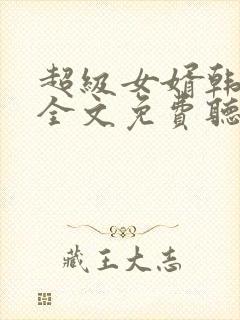 超級女婿韩
全文免費聽
藏王大志